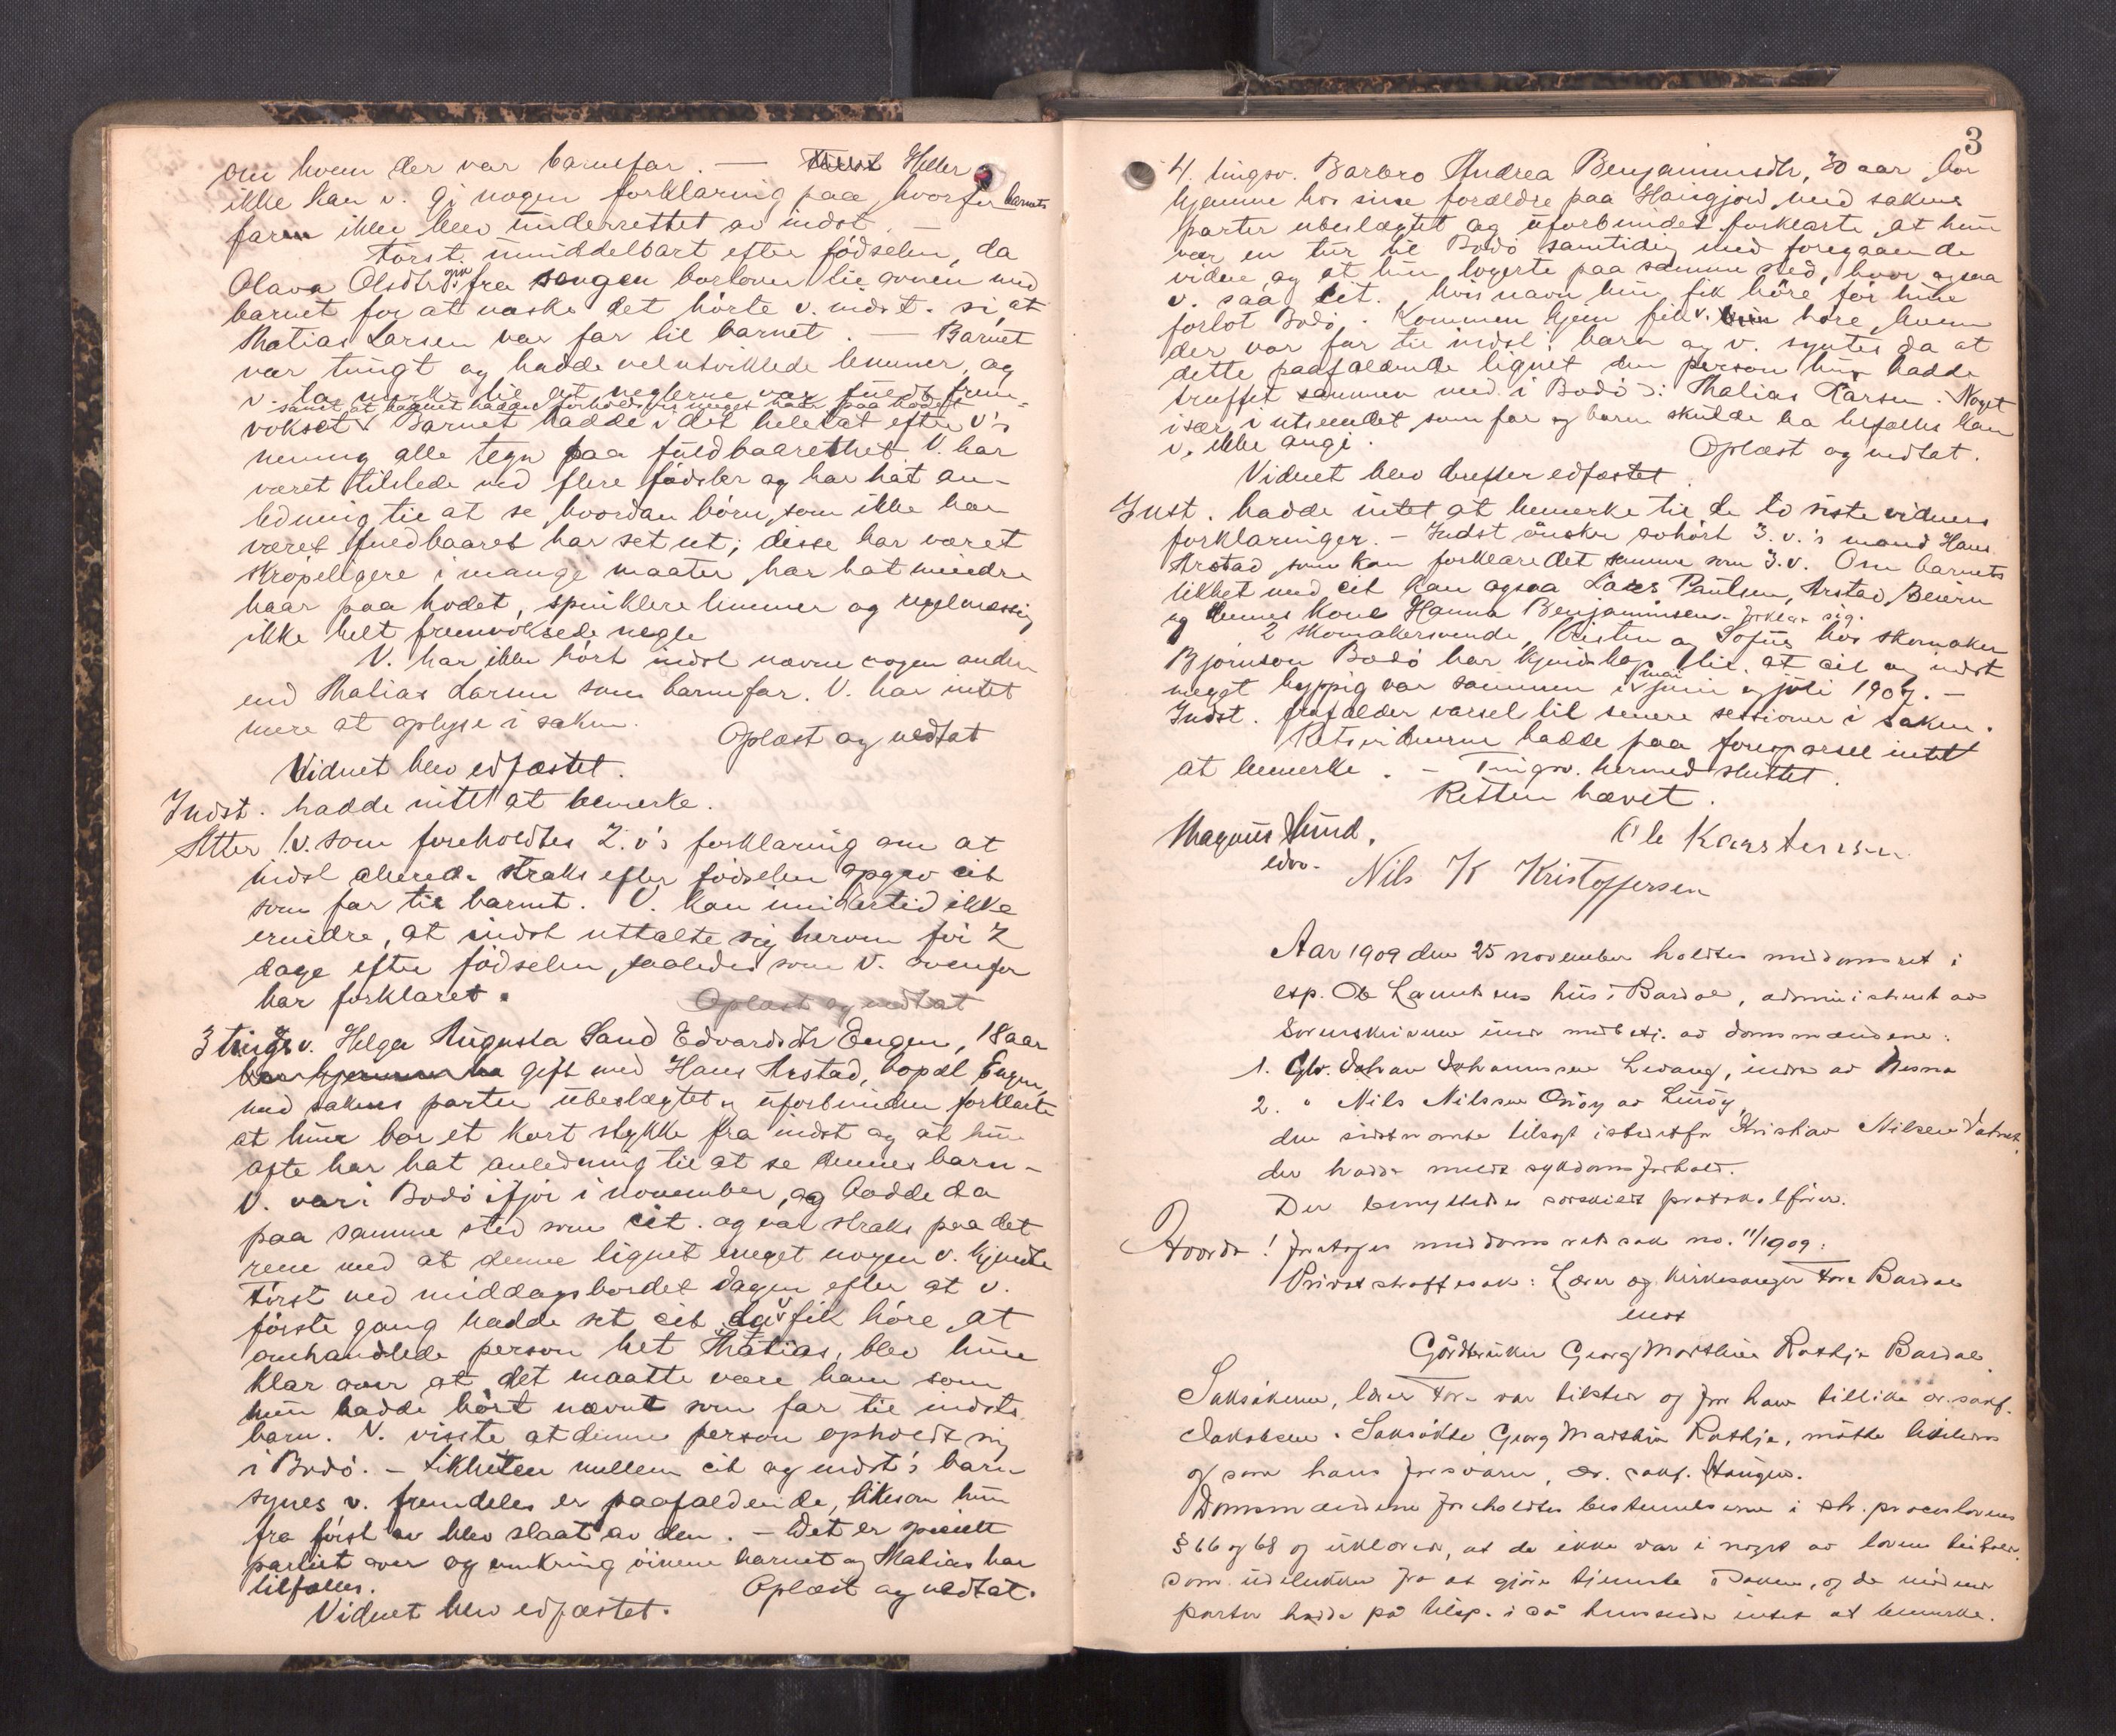 om hvem der var barnefar. — Heller
ikke kan v. gi nogen forklaring paa hvorfor barnets
faren ikke blev underrettet av indst. —
Først umiddelbart efter fødselen, da
Olava Olsdtr gik fra sengen bortover til ovnen med
barnet for at vaske det hørte v. indst. si, at
Mathias Larsen var far til barnet. — Barnet
var tungt og hadde velutviklede lemmer, og
v. la merke til at neglerne var fuldt frem-
samt at barnet hadde forholdsvis meget haar paa hodet
vokset. Barnet hadde i det hele tat efter v's
mening alle tegn paa fuldbaarethet. V. har
været tilstede ved flere fødsler og har hat an-
ledning til at se hvordan børn, som ikke har
været fuldbaaret har set ut; disse har været
skrøpeligere i mange maater, har hat mindre
haar paa hodet, spinklere lemmer og regelmæssig
ikke helt fremvoksede negle
V. har ikke hørt indst nævne nogen anden
end Mathias Larsen som barnefar. V. har intet
mere at oplyse i saken.
Oplæst og vedtat
Vidnet blev edfæstet.
Indst. hadde intet at bemerke.
Atter 1.v. som foreholdtes 2.v's forklaring om at
indst allerede straks efter fødselen opgav cit
som far til barnet. V. kan imidlertid ikke
erindre, at indst uttalte sig herom før 2
dage efter fødselen, saaledes som v. ovenfor
har forklaret.
Oplæst og vedtat
3 tingsv. Helga Augusta Sand Edvardsdtr Engen, 18 aar
bor hjemme gift med Hans Arstad, bopæl Engen,
med sakens parter ubeslægtet og uforbunden forklarte
at hun bor et kort stykke fra indst og at hun
ofte har hat anledning til at se dennes barn. –
V. var i Bodø ifjor i november, og bodde da
paa samme sted som cit. og var straks paa det
rene med at denne lignet meget nogen v. kjendte
Først ved middagsbordet dagen efter at v.
første gang hadde set cit, da v fik høre, at
omhandlede person het Mathias, blev hun
klar over at det maatte være ham som
hun hadde hørt nævnt som far til indsts
barn. V. visste at denne person opholdt sig
i Bodø. – Likheten mellem cit og indst's barn
synes v. fremdeles er paafaldende, likesom hun
fra først av blev slaat av den. – Det er specielt
partiet over og omkring øinene barnet og Mathias har
tilfælles.
Oplæst og vedtat.
Vidnet blev edfæstet.
3
4. tingsv. Barbro Andrea Benjaminsdtr, 30 aar, bor
hjemme hos sine forældre paa Haugjord, med sakens
parter ubeslægtet og uforbundet forklarte, at hun
var en tur til Bodø samtidig med foregaaende
vidne, og at hun logerte paa samme sted, hvor ogsaa
v. saa cit. hvis navn hun fik høre før hun
forlot Bodø. Kommen hjem fik v. høre, hvem
der var far til indst's barn og v. syntes da at
dette paafaldende lignet den person hun hadde
truffet sammen med i Bodø ɔ: Mathias Larsen. Noget
især i utseendet som far og barn skulde ha tilfælles kan
v. ikke angi.
Oplæst og vedtat.
Vidnet blev derefter edfæstet.
Inst. hadde intet at bemerke til de to siste vidners
forklaringer. – Indst ønsker avhørt 3.v.'s mand Hans
Arstad, som kan forklare det samme som 3.v. Om barnets
likhet med cit kan ogsaa Lars Paulsen, Arstad, Beiern
og dennes kone Hanna Benjaminsen forklare sig.
2 skomakersvende, Kristen og Sofus hos skomaker
Bjørnson Bodø har kjendskap til at cit og indst
meget hyppig var sammen i mai juni og juli 1907. –
Indst. frafalder varsel til senere sessioner i saken.
Retsvidnerne hadde paa forespørsel intet
at bemerke. – Tingsv. hermed sluttet.
Retten hævet.
Magnus Lund,
edsv.
Ole Karstensen
Nils K Kristoffersen
Aar 1909 den 25 november holdtes meddomsret i
exp. Ole Larentsens hus i Bardal, administreret av
Sorenskriveren under medvirkn. av domsmændene:
1. Gbr. Johan Johannesen Levang, indre av Nesna
2. " Nils Nilssen Osøy av Lurøy
den sidstnævnte tilsagt istedetfor Kristian Nilsen
der hadde meldt sykdomsforhold.
Der benyttedes særskilt protokolfører.
Hvorda! foretoges meddomsrets sak no. 11/1909:
Privat straffesak: Lærer og kirkesanger Tore Bardal
mot
Gårdbruker Georg Marthin Rothje Bardal.
Saksøkeren, lærer Tore var tilstede og for ham tillike or. sakf.
Jakobsen. Saksøkte Georg Marthin Rothje, møtte likeledes
og som hans forsvarer, or. sakf. Haugen.
Domsmændene foreholdtes bestemmelserne i str. proceslovens
§ 66 og 68 og erklærede, at de ikke var i noget av lovens tilfælde,
som utelukker fra at gjøre tjeneste i saken, og de møtende
parter hadde på tilsp. i så henseende intet at bemerke.